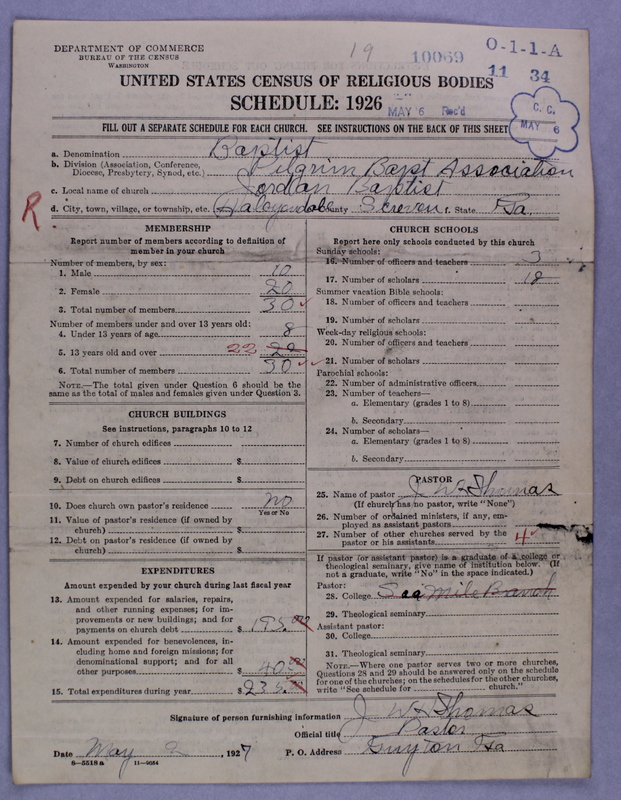 19
DEPARTMENT OF COMMERCE
BUREAU OF THE CENSUS
WASHINGTON
10069
O-1-1-A
11 34
UNITED STATES CENSUS OF RELIGIOUS BODIES
SCHEDULE: 1926
MAY 6 Rec'd
C. C.
MAY 6
FILL OUT A SEPARATE SCHEDULE FOR EACH CHURCH. SEE INSTRUCTIONS ON THE BACK OF THIS SHEET
a. Denomination Baptist
b. Division (Association, Conference, Diocese, Presbytery, Synod, etc.) Pilgrim Bapt Association
c. Local name of church Jordan Baptist
R.
d. City, town, village, or township, etc. County Screven f. State Ga.
MEMBERSHIP
Report number of members according to definition of
member in your church
Number of members, by sex:
1. Male 10
2. Female 20
3. Total number of members 30
Number of members under and over 13 years old:
4. Under 13 years of age 8
5. 13 years old and over 22 20
6. Total number of members 30
NOTE.—The total given under Question 6 should be
same as the total of males and females given under Question 3.
CHURCH BUILDINGS
See instructions, paragraphs 10 to 12
7. Number of church edifices
8. Value of church edifices $
9. Debt on church edifices $
10. Does church own pastor's residence no
Yes or No
11. Value of pastor's residence (if owned by
church) $
12. Debt on pastor's residence (if owned by
church) $
EXPENDITURES
Amount expended by your church during last fiscal year
13. Amount expended for salaries, repairs,
and other running expenses; for im-
provements or new buildings; and for
payments on church debt $ 195.00
14. Amount expended for benevolences, in-
cluding home and foreign missions; for
denominational support; and for all
other purposes $ 40.00
15. Total expenditures during year $ 235.00
CHURCH SCHOOLS
Report here only schools conducted by this church
Sunday schools:
16. Number of officers and teachers 3
17. Number of scholars 18
Summer vacation Bible schools:
18. Number of officers and teachers
19. Number of scholars
Week-day religious schools:
20. Number of officers and teachers
21. Number of scholars
Parochial schools:
22. Number of administrative officers
23. Number of teachers—
a. Elementary (grades 1 to 8)
b. Secondary
24. Number of scholars—
a. Elementary (grades 1 to 8)
b. Secondary
PASTOR
25. Name of pastor J W Thomas
(If church has no pastor, write "None")
26. Number of ordained ministers, if any, em-
ployed as assistant pastors
27. Number of other churches served by the
pastor or his assistants 4
If pastor (or assistant pastor) is a graduate of a college or
theological seminary, give name of institution below. (If
not a graduate, write "No" in the space indicated.)
Pastor:
28. College Mile Branch
29. Theological seminary
Assistant pastor:
30. College
31. Theological seminary
NOTE.—Where one pastor serves two or more churches,
Questions 28 and 29 should be answered only on the schedule
for one of the churches; on the schedules for the other churches,
write "See schedule for church."
Signature of person furnishing information J W Thomas
Official title Pastor
Date May 2, 1927 P. O. Address Guyton Ga
8—5518 a 11—9054